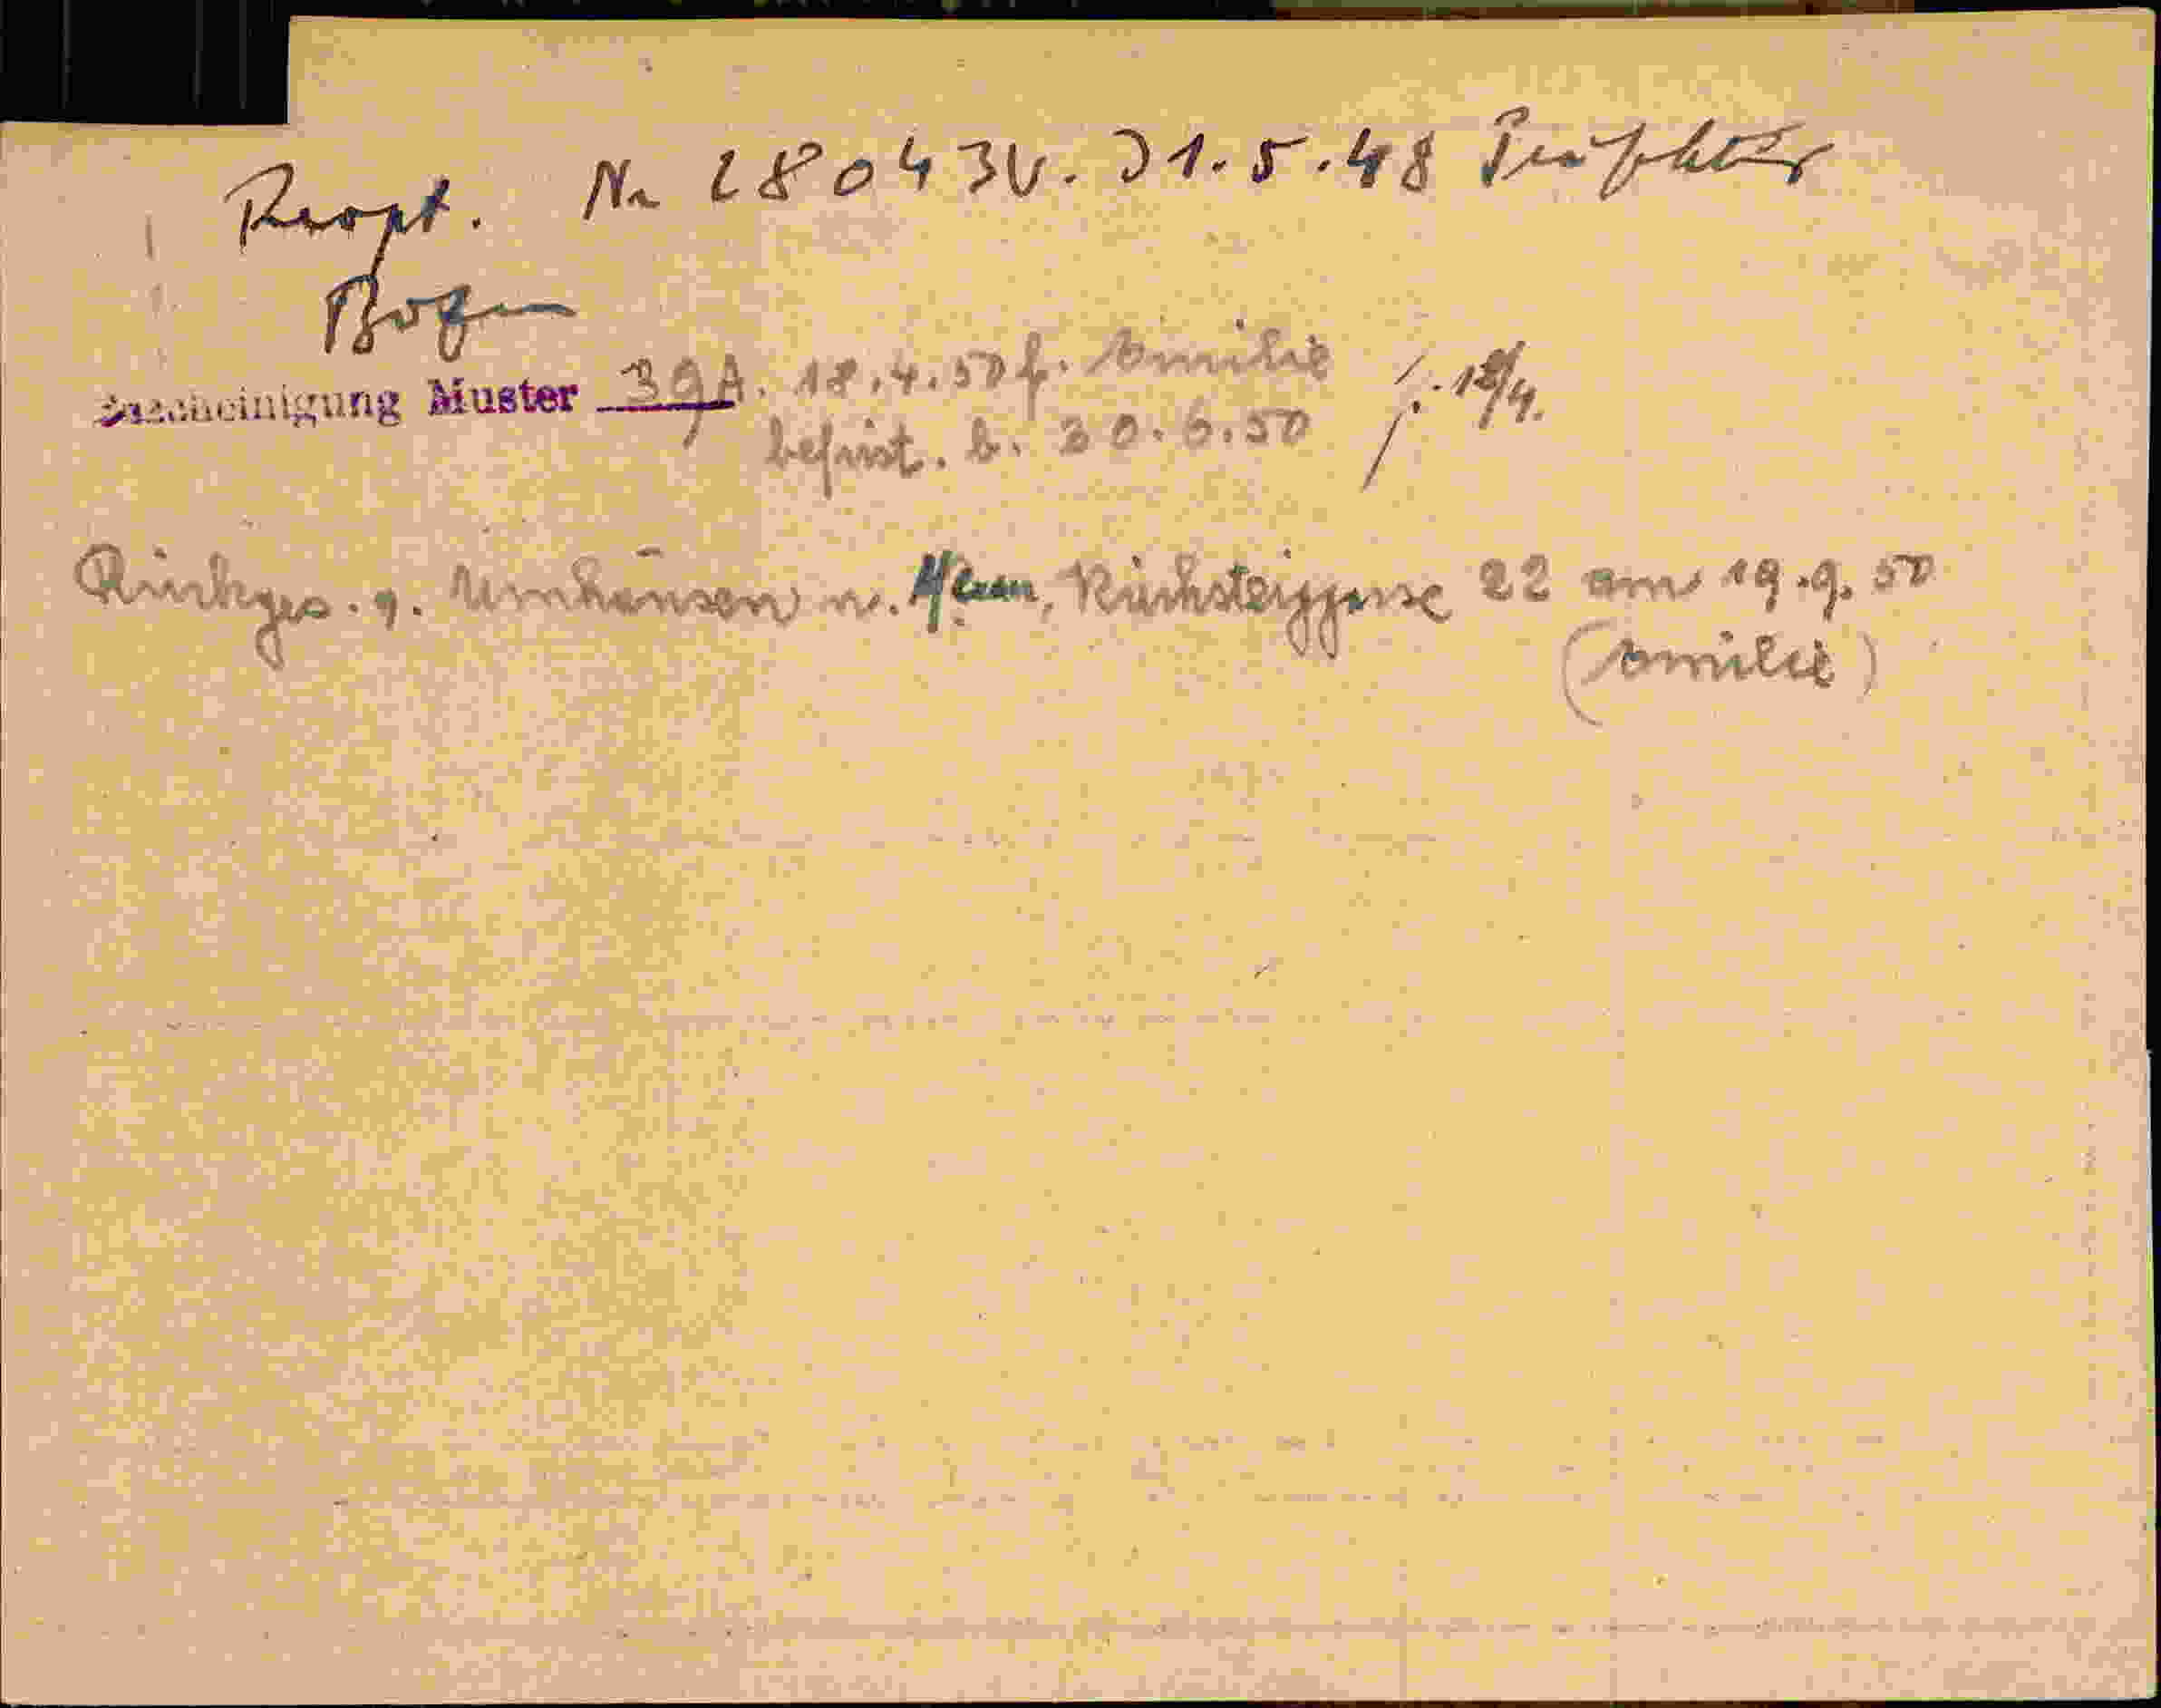 Reopt. Nr 28043 v. 31.5.48 Präfektur
Bozen
Bescheinigung Muster 39A. 18.4.50 f. Emilie
befrist. b. 30.6.50
Rückges. v. Umhausen n. Meran, Rücksteiggasse 22 am 19.9.50
(Emilie)